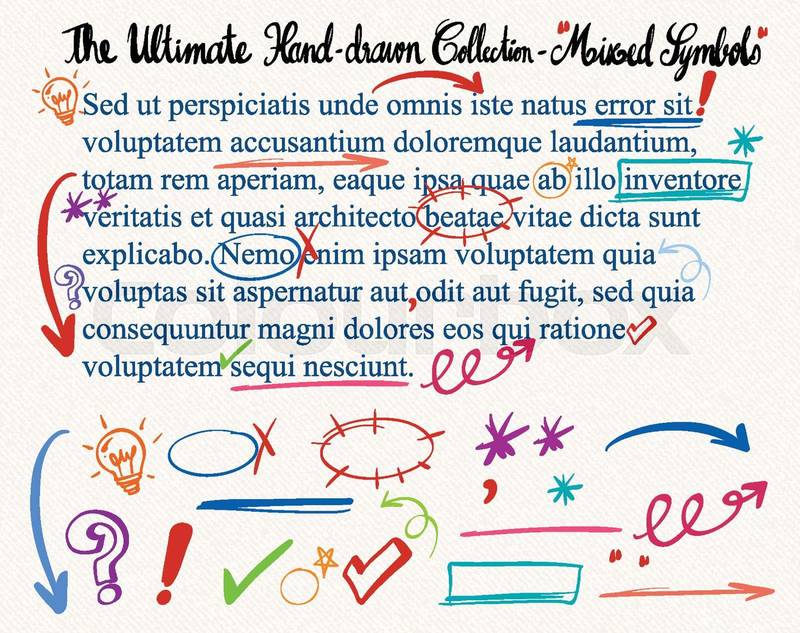 The Ultimate Hand-drawn Collection - "Mixed Symbols"
Sed ut perspiciatis unde omnis iste natus error sit!
voluptatem accusantium doloremque laudantium,
totam rem aperiam, eaque ipsa quae ab illo inventore
veritatis et quasi architecto beatae vitae dicta sunt
explicabo. Nemo enim ipsam voluptatem quia
?voluptas sit aspernatur aut,odit aut fugit, sed quia
consequuntur magni dolores eos qui ratione
voluptatem sequi nesciunt.